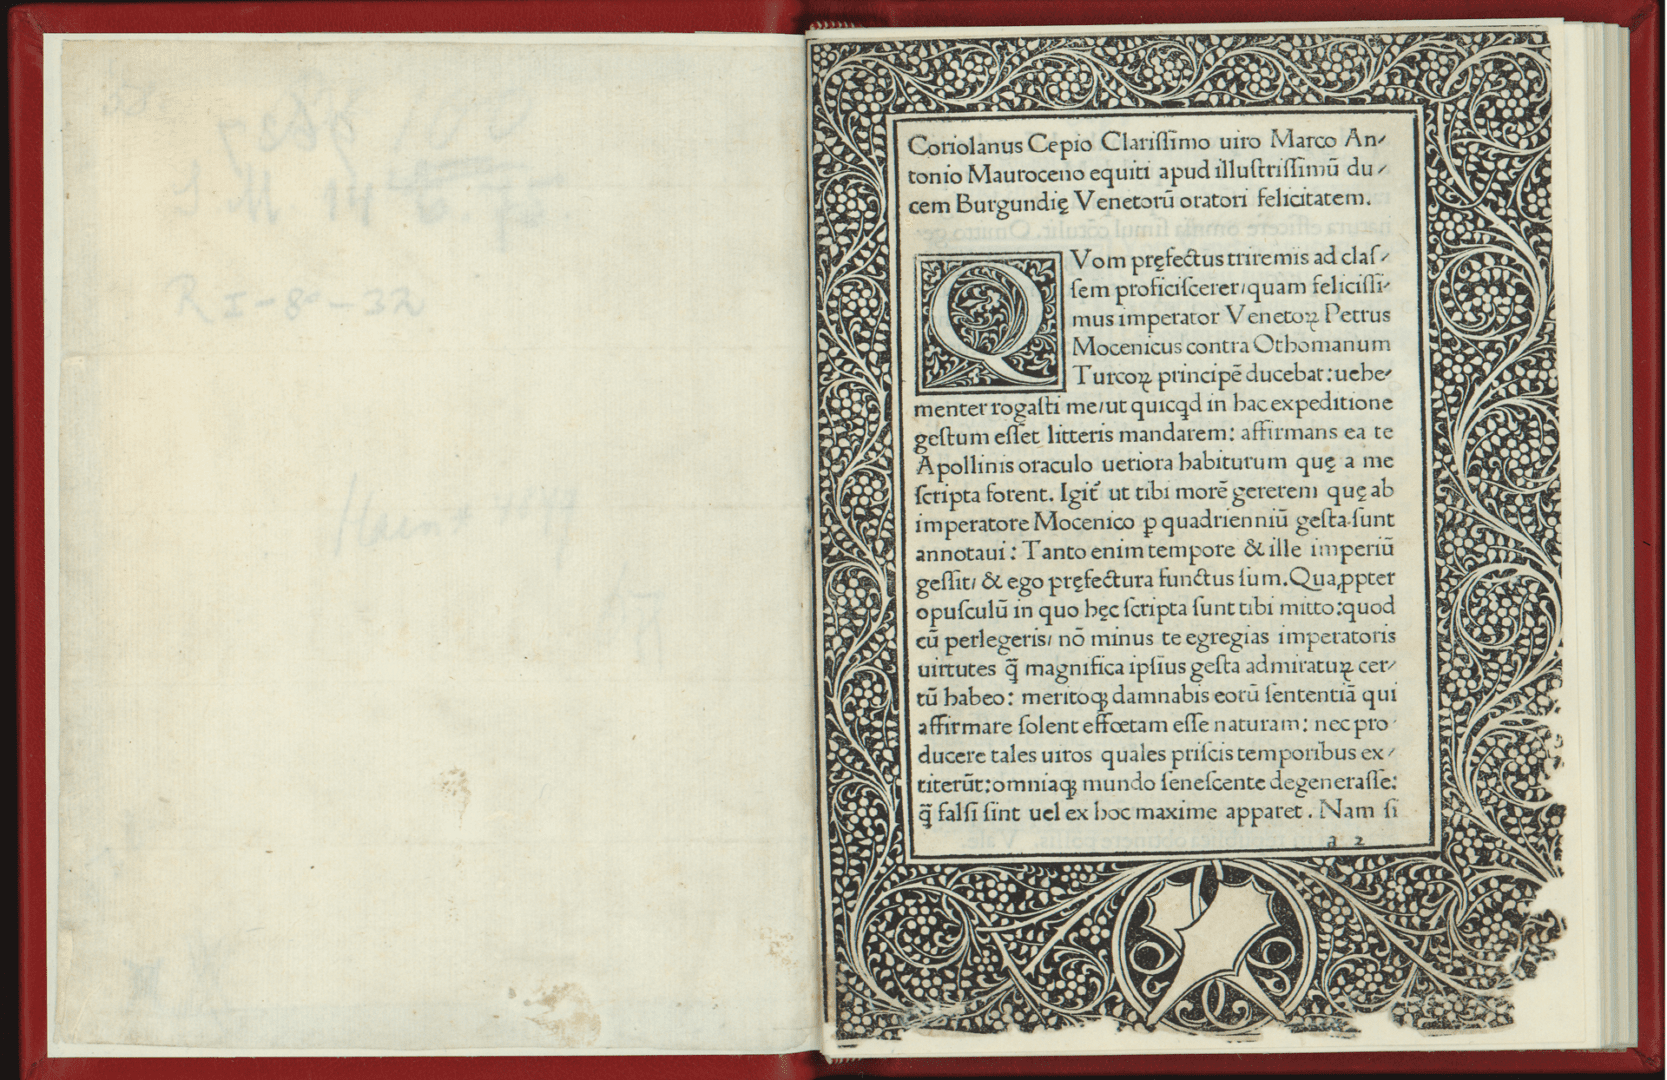 R I - 8 - 32
Hain *
Coriolanus Cepio Clariſſimo uiro Marco An⸗
tonio Mauroceno equiti apud illuſtriſſimū du⸗
cem Burgundię Venetorū oratori felicitatem.
QVom pręfectus triremis ad claſ⸗
ſem proficiſcerer/quam feliciſſi⸗
mus imperator Venetoꝝ Petrus
Mocenicus contra Othomanum
Turcoꝝ principē ducebat: uehe⸗
menter rogaſti me/ut quicꝗd in hac expeditione
geſtum eſſet litteris mandarem: affirmans ea te
Apollinis oraculo ueriora habiturum quę a me
ſcripta forent. Igit᷑ ut tibi morē gererem quę ab
imperatore Mocenico ꝑ quadrienniū geſta ſunt
annotaui: Tanto enim tempore & ille imperiū
geſſit/ & ego pręfectura functus ſum. Quaꝓpter
opuſculū in quo hęc ſcripta ſunt tibi mitto: quod
cū perlegeris/ nō minus te egregias imperatoris
uirtutes ꝗ̄ magnifica ipſius geſta admiratuꝝ cer⸗
tū habeo: meritoqꝫ damnabis eorū ſententiā qui
affirmare ſolent effœtam eſſe naturam: nec pro
ducere tales uiros quales priſcis temporibus ex⸗
titerūt: omniaqꝫ mundo ſeneſcente degeneraſſe:
ꝗ̄ falſi ſint uel ex hoc maxime apparet. Nam ſi
a 2